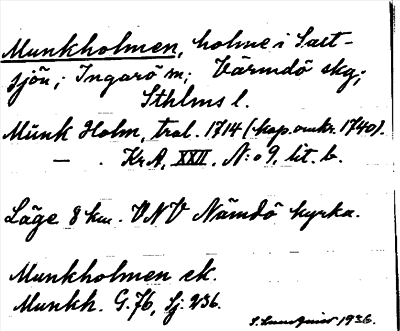 Munkholmen, holme i Salt-
sjön, Ingarö sn, Värmdö skg,
Sthlms l.
Munk Holm, tral. 1714 (kop. omkr. 1740).
— . Kr A, XXII. N:o 9, lit. b.
Läge 8 km. VNV Nämdö kyrka.
Munkholmen ek.
Munkh. G. 76, Sj: 236.
1936.